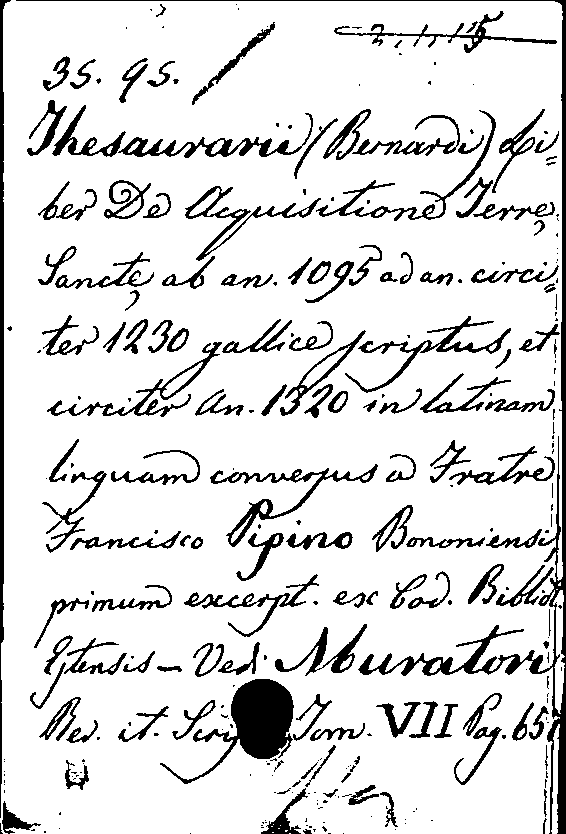 2.1.15
35. 95.
Thesaurarii (Bernardi) Li=
ber De Acquisitione Terrę
Sanctę ab an. 1095 ad an. circi=
ter 1230 gallice scriptus, et
circiter An. 1320 in latinam
linguam conversus a Fratre
Francisco Pipino Bononiensi,
primum excerpt. ex Cod. Bibliot.
Estensis - Vedi Muratori
Rer. it. Scrip Tom. VII Pag. 657